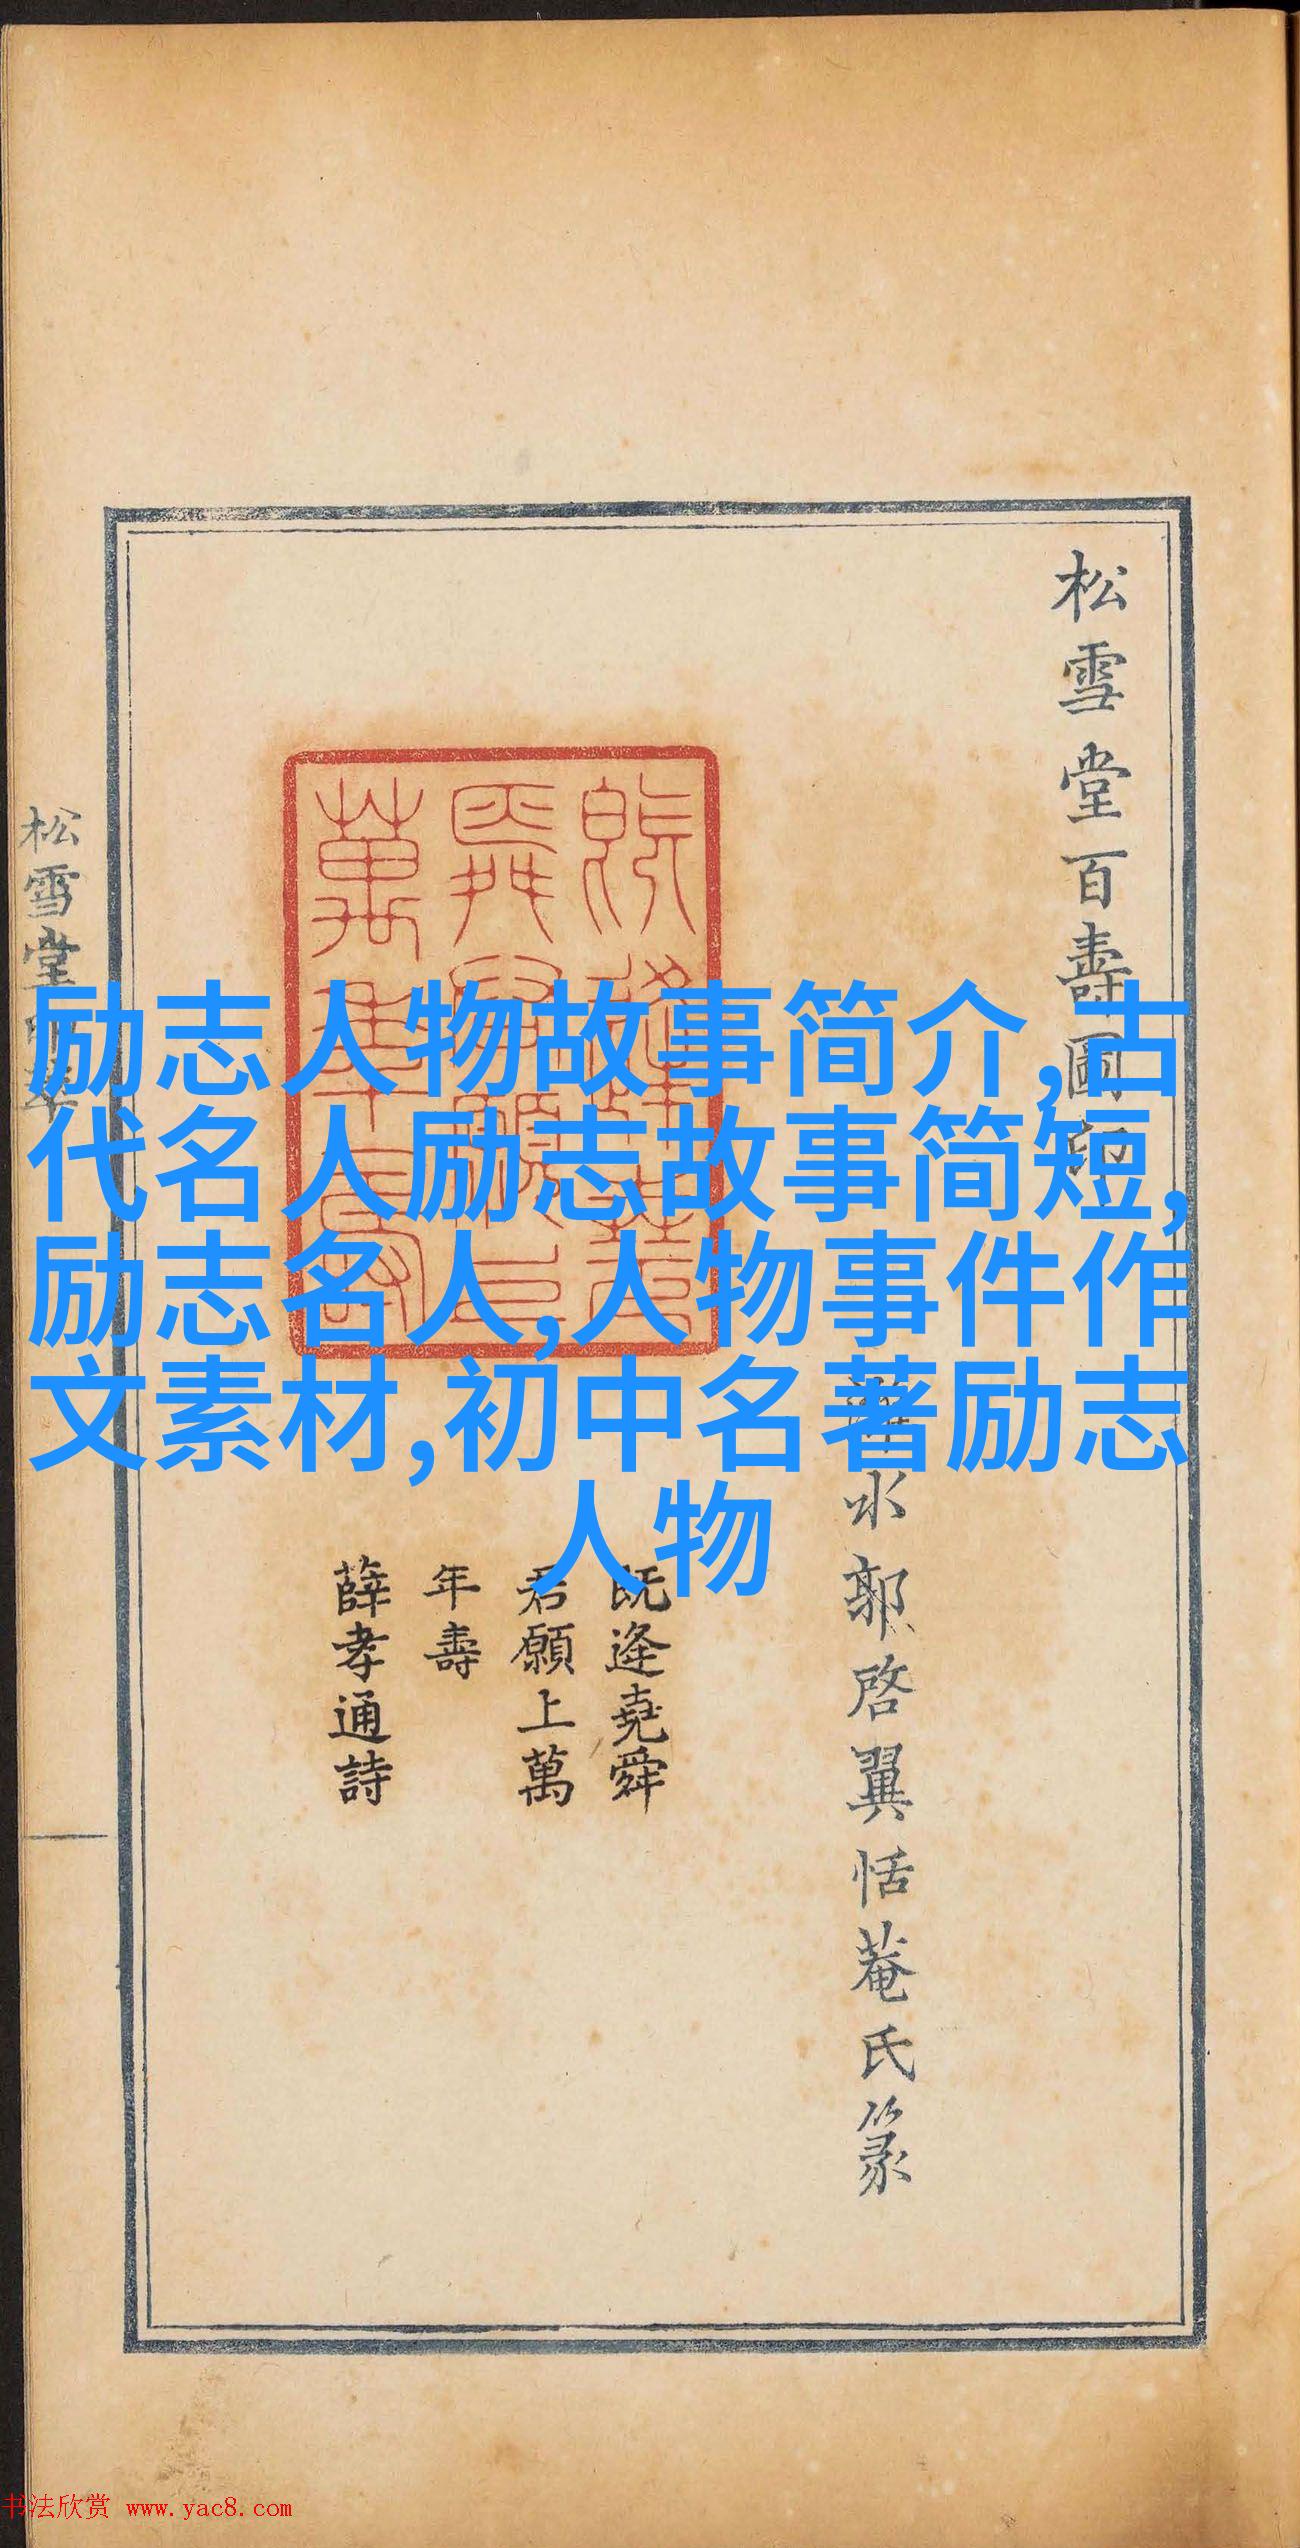 松雪堂百壽圖印
水郭啓翼恬菴氏篆
既逢堯舜
君願上萬
年壽
薛孝通詩
松雪堂
励志人物故事简介,古
代名人励志故事简短,
励志名人,人物事件作
文素材,初中名著励志
人物
书法欣赏 www.yac8.com